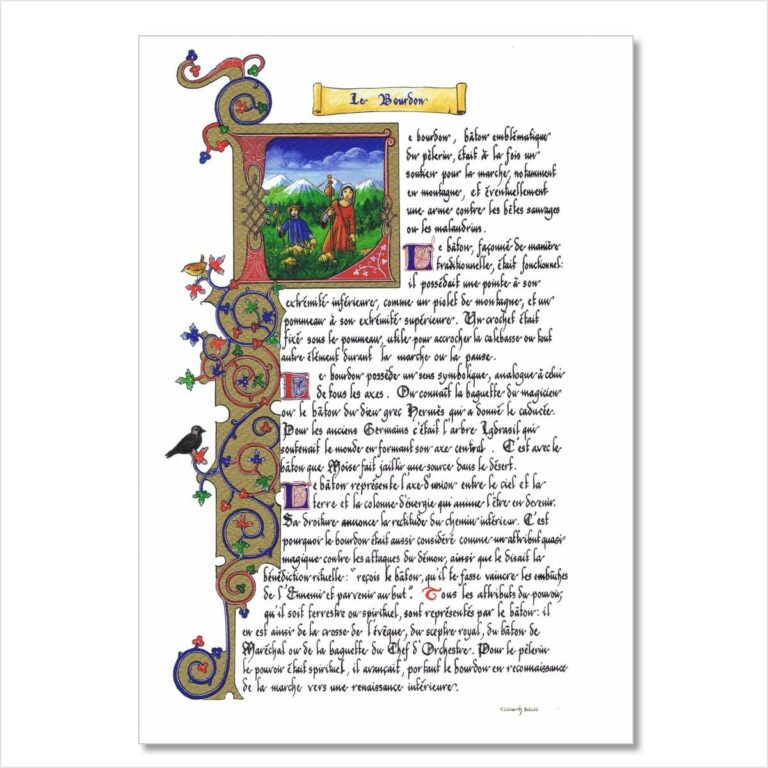 Le Bourdon
Le bourdon, bâton emblématique
du pèlerin, était à la fois un
soutien pour la marche, notamment
en montagne, et éventuellement
une arme contre les bêtes sauvages
ou les malandrins.
Le bâton, façonné de manière
traditionnelle, était fonctionnel:
il possédait une pointe à son
extrémité inférieure, comme un piolet de montagne, et un
pommeau à son extrémité supérieure. Un crochet était
fixé sous le pommeau, utile pour accrocher la calebasse ou tout
autre élément durant la marche ou la pause.
Le bourdon possède un sens symbolique, analogue à celui
de tous les axes. On connaît la baguette du magicien
ou le bâton du dieu grec Hermès qui a donné le caducée.
Pour les anciens Germains c'était l'arbre Igdrasil qui
soutenait le monde en formant son axe central. C'est avec le
bâton que Moise fait jaillir une source dans le désert.
Le bâton représente l'axe d'union entre le ciel et la
terre et la colonne d'énergie qui anime l'être en devenir.
Sa droiture annonce la rectitude du chemin intérieur. C'est
pourquoi le bourdon était aussi considéré comme un attribut quasi-
magique contre les attaques du démon, ainsi que le disait la
bénédiction rituelle: "reçois le bâton, qu'il te fasse vaincre les embûches
de l'Ennemi et parvenir au but". Tous les attributs du pouvoir,
qu'il soit terrestre ou spirituel, sont représentés par le bâton: il
en est ainsi de la crosse de l'évêque, du sceptre royal, du bâton de
Maréchal ou de la baguette du Chef d'Orchestre. Pour le pèlerin
le pouvoir était spirituel, il avançait, portant le bourdon en reconnaissance
de la marche vers une renaissance intérieure.